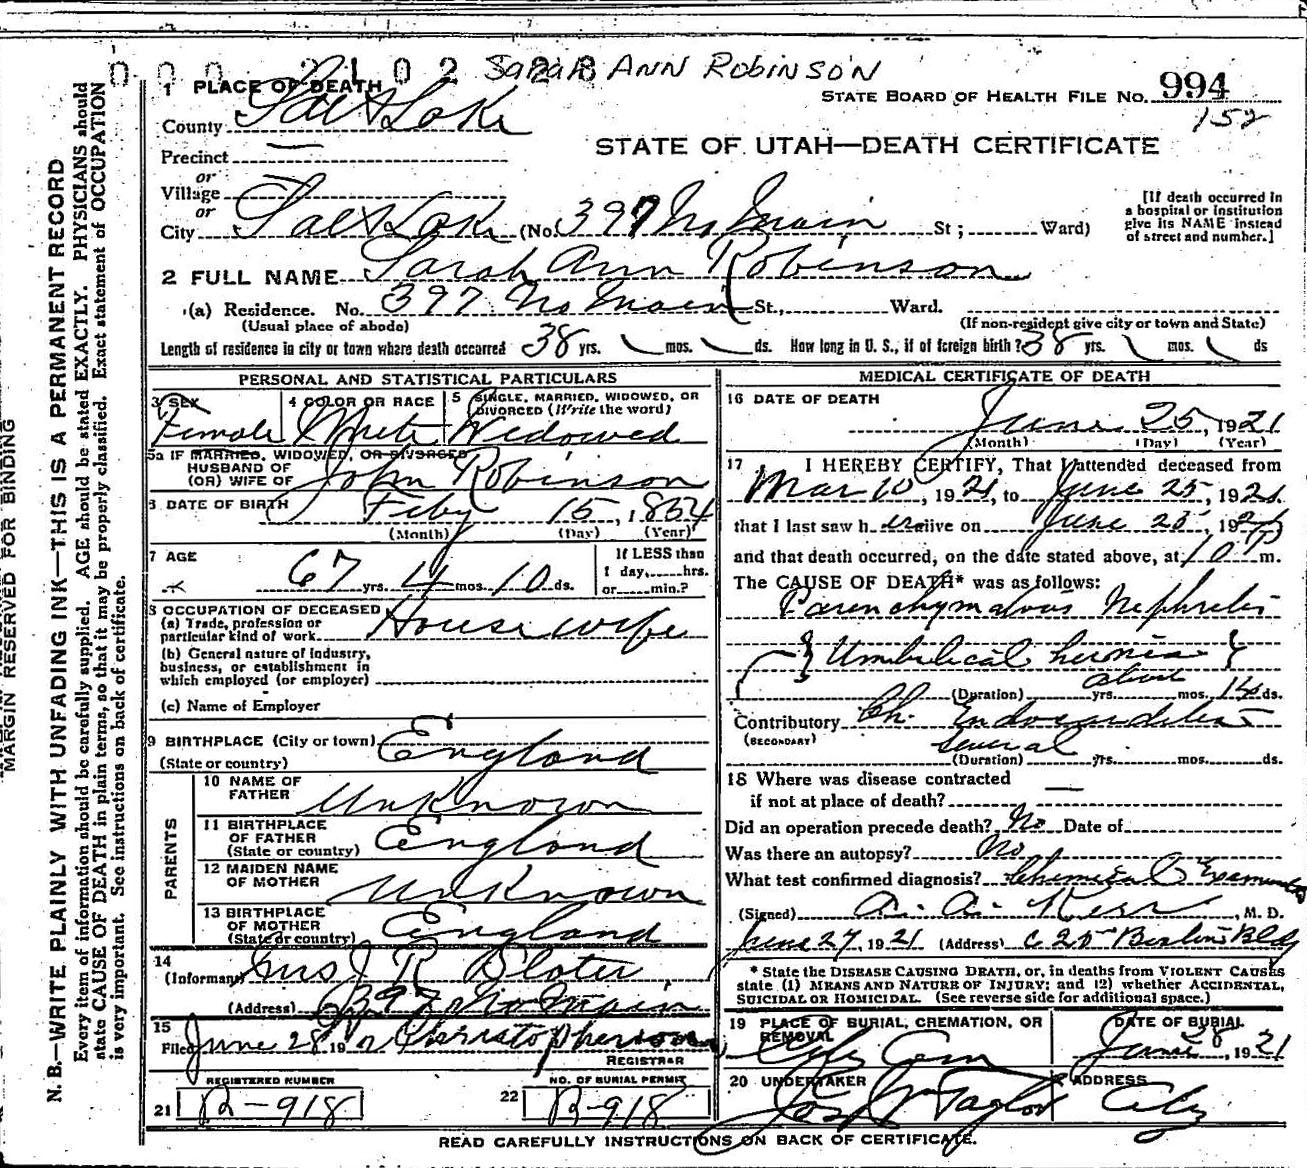 0 0 0 2 1 0 2 2 8 SARAH ANN ROBINSON
1 PLACE OF DEATH
STATE BOARD OF HEALTH FILE NO. 994
152
County Salt Lake
STATE OF UTAH—DEATH CERTIFICATE
Precinct
or
Village
or
City Salt Lake (No. 397 No Main St; Ward)
[If death occurred in
a hospital or institution
give its NAME instead
of street and number.]
2 FULL NAME Sarah Ann Robinson
(a) Residence. No. 397 No Main St., Ward.
(Usual place of abode) (If non-resident give city or town and State)
Length of residence in city or town where death occurred 38 yrs. mos. ds. How long in U. S., if of foreign birth? 38 yrs. mos. ds
PERSONAL AND STATISTICAL PARTICULARS
3 SEX Female
4 COLOR OR RACE White
5 SINGLE, MARRIED, WIDOWED, OR
DIVORCED (Write the word)
Widowed
5a IF MARRIED, WIDOWED, OR DIVORCED
HUSBAND OF
(OR) WIFE OF John Robinson
6 DATE OF BIRTH Feby 15, 1854
(Month) (Day) (Year)
7 AGE 67 yrs. 4 mos. 10 ds.
If LESS than
1 day, hrs.
or min.?
8 OCCUPATION OF DECEASED
(a) Trade, profession or
particular kind of work Housewife
(b) General nature of industry,
business, or establishment in
which employed (or employer)
(c) Name of Employer
9 BIRTHPLACE (City or town)
(State or country) England
PARENTS
10 NAME OF
FATHER Unknown
11 BIRTHPLACE
OF FATHER
(State or country) England
12 MAIDEN NAME
OF MOTHER Unknown
13 BIRTHPLACE
OF MOTHER
(State or country) England
14
(Informant) Mrs J R Slater
(Address) 397 No Main
15
Filed June 28 19 Christopherson
REGISTRAR
REGISTERED NUMBER
21 B-918
NO. OF BURIAL PERMIT
22 B-918
MEDICAL CERTIFICATE OF DEATH
16 DATE OF DEATH
June 25, 1921
(Month) (Day) (Year)
17 I HEREBY CERTIFY, That I attended deceased from
Mar 10, 1921, to June 25, 1921
that I last saw her alive on June 25, 1921
and that death occurred, on the date stated above, at 10 P m.
The CAUSE OF DEATH* was as follows:
Parenchymatous Nephritis
Umbilical hernia
about
(Duration) yrs. mos. 14 ds.
Contributory Ch. Endocarditis
(SECONDARY)
several
(Duration) yrs. mos. ds.
18 Where was disease contracted
if not at place of death?
Did an operation precede death? No Date of
Was there an autopsy? No
What test confirmed diagnosis? Chemical Examination
(Signed) A. A. Kerr, M. D.
June 27, 1921 (Address)
* State the DISEASE CAUSING DEATH, or, in deaths from VIOLENT CAUSES
state (1) MEANS AND NATURE OF INJURY; and (2) whether ACCIDENTAL,
SUICIDAL OR HOMICIDAL. (See reverse side for additional space.)
19 PLACE OF BURIAL, CREMATION, OR
REMOVAL
City Cem
DATE OF BURIAL
June 28, 1921
20 UNDERTAKER
Jos. Wm Taylor
ADDRESS
City
READ CAREFULLY INSTRUCTIONS ON BACK OF CERTIFICATE.
MARGIN RESERVED FOR BINDING
N. B.—WRITE PLAINLY WITH UNFADING INK—THIS IS A PERMANENT RECORD
Every item of information should be carefully supplied. AGE should be stated EXACTLY. PHYSICIANS should
state CAUSE OF DEATH in plain terms, so that it may be properly classified. Exact statement of OCCUPATION
is very important. See instructions on back of certificate.